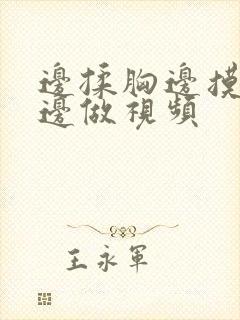 邊揉胸邊摸
邊做視頻
王永軍